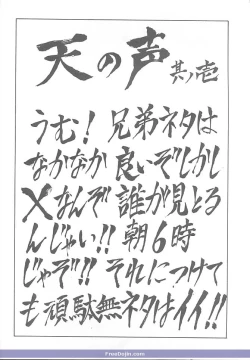 天の声 其ノ壱
うむ！兄弟ネタは
なかなか良いぞしかし
Xなんぞ誰が見とる
んじゃい!!朝6時
じゃぞ!!それにつけて
も頑駄無ネタはイイ!!
FreeDojin.com